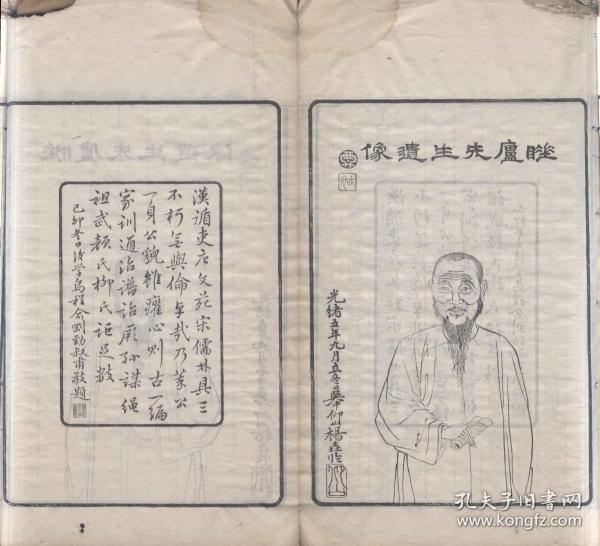 睉廬先生遺像
光緒五年九月五
仰
楊
漢循吏唐文苑宋儒林具三
不朽孰與倫卓哉乃蒙公
一身公貌雖癯心則古一編
家訓通治譜詒厥孫謀繩
祖武顏氏柳氏詎足數
己卯冬日後學烏程俞劉勤叔甫敬題
孔夫子旧书网
www.kongfz.com